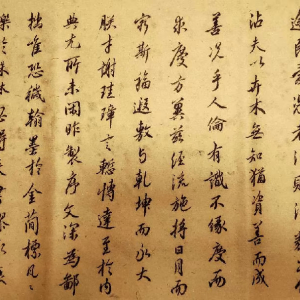 沾夫以卉木無知猶資善而成
善況乎人倫有識不緣慶而
求慶方冀茲經流施將日月而
窮斯福遐敷与乾坤而永大
朕才謝珪璋言慙博達至於内
典尤所未閑昨製序文深為鄙
拙唯恐穢翰墨於金簡標瓦